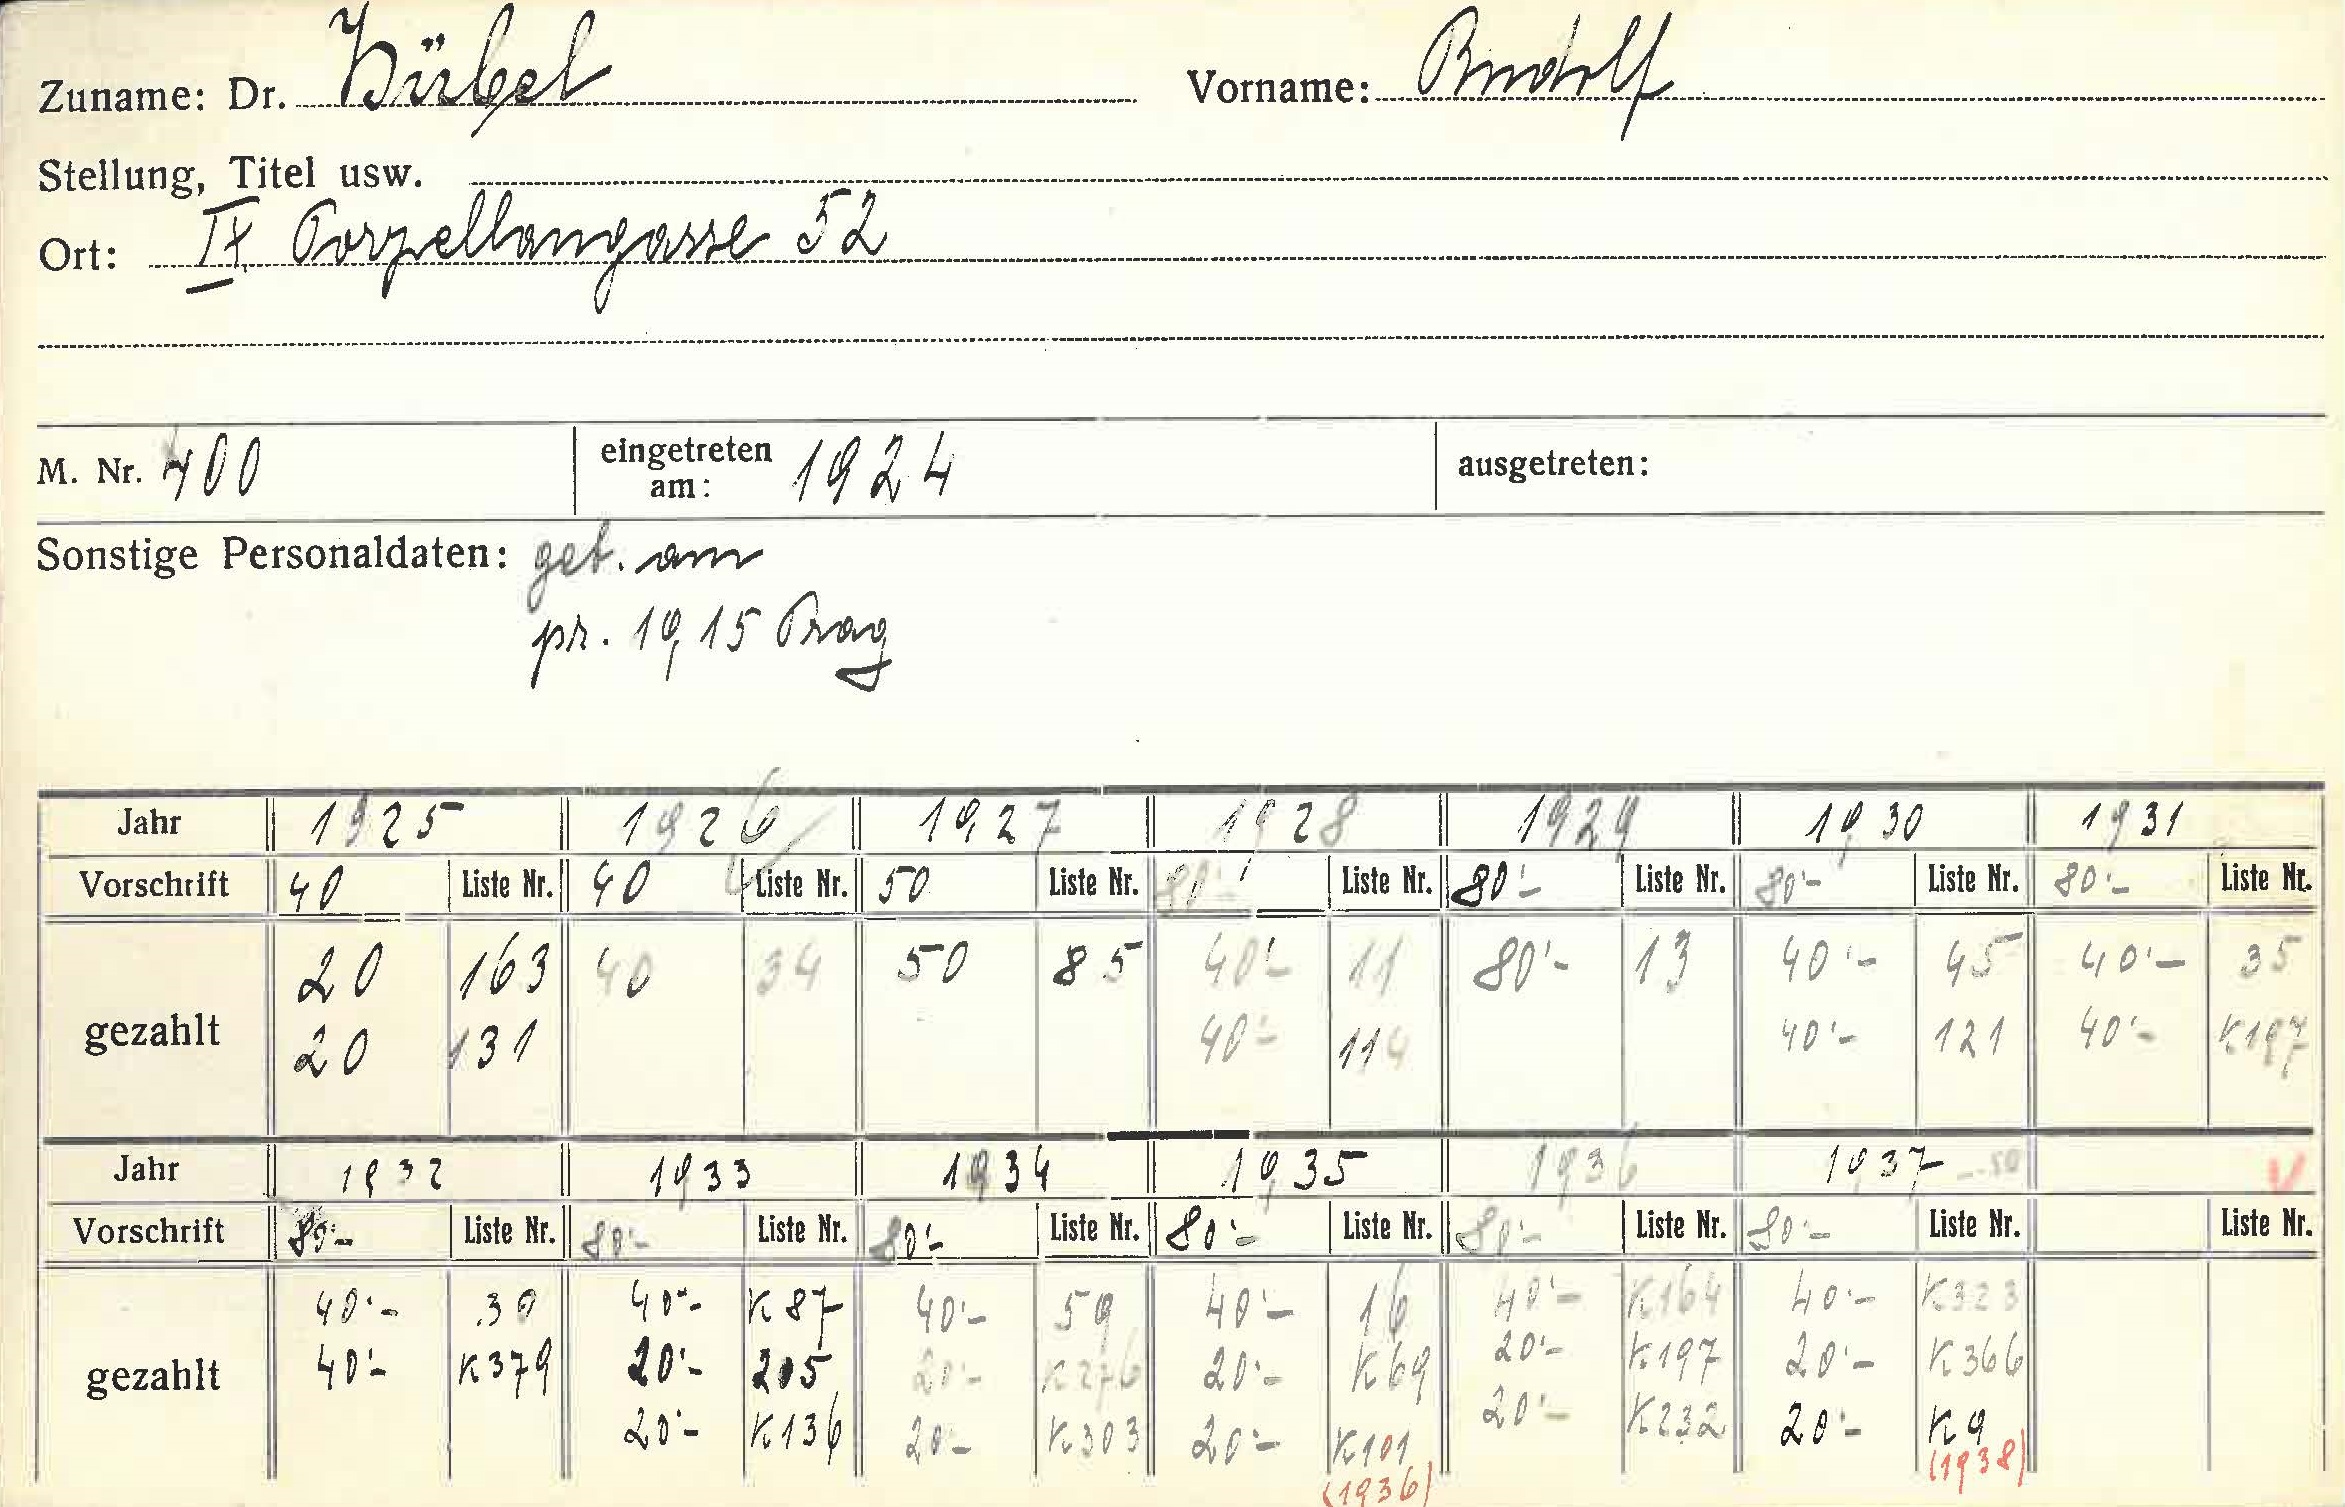 Zuname: Dr. Hübel Vorname: Rudolf
Stellung, Titel usw.
Ort: IX. Porzellangasse 52
M. Nr. 400 eingetreten am: 1924 ausgetreten:
Sonstige Personaldaten: geb. am
pr. 1915 Prag
Jahr 1925 1926 1927 1928 1929 1930 1931
Vorschrift 40 Liste Nr. 40 Liste Nr. 50 Liste Nr. 80'- Liste Nr. 80'- Liste Nr. 80'- Liste Nr. 80'- Liste Nr.
20 163 40 34 50 85 40'- 11 80'- 13 40'- 45 40'- 35
gezahlt
20 131 40'- 114 40'- 121 40'- K197
Jahr 1932 1933 1934 1935 1936 1937 -.50
Vorschrift 80'- Liste Nr. 80'- Liste Nr. 80'- Liste Nr. 80'- Liste Nr. 80'- Liste Nr. 80'- Liste Nr. Liste Nr.
40'- 30 40'- K87 40'- 59 40'- 16 40'- K164 40'- K323
gezahlt 40'- K379 20'- 205 20'- K276 20'- K69 20'- K197 20'- K366
20'- K136 20'- K303 20'- K101 20'- K232 20'- K9
(1936) (1938)